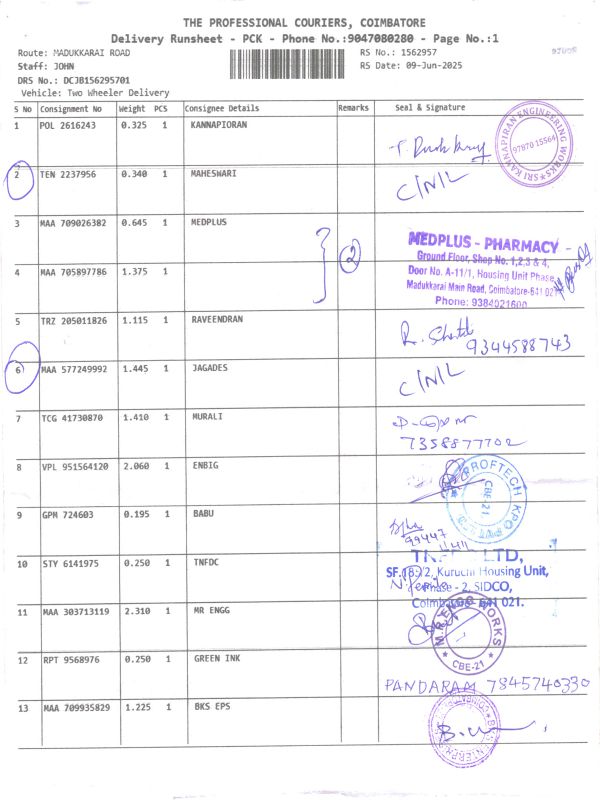 THE PROFESSIONAL COURIERS, COIMBATORE
Delivery Runsheet - PCK - Phone No.:9047080280 - Page No.:1
Route: MADUKKARAI ROAD
RS No.: 1562957
Staff: JOHN
RS Date: 09-Jun-2025
DRS No.: DCJB156295701
Vehicle: Two Wheeler Delivery
S No Consignment No Weight PCS Consignee Details Remarks Seal & Signature
1 POL 2616243 0.325 1 KANNAPIORAN
SRI KANNAPIRAN ENGINEERING WORKS
97870 15564
2 TEN 2237956 0.340 1 MAHESWARI
C/N/L
3 MAA 709026382 0.645 1 MEDPLUS
2
MEDPLUS - PHARMACY
Ground Floor, Shop No. 1,2,3 & 4,
Door No. A-11/1, Housing Unit Phase
Madukkarai Main Road, Coimbatore-641 021
Phone: 9384021600
4 MAA 705897786 1.375 1
5 TRZ 205011826 1.115 1 RAVEENDRAN
R.
9344588743
6 MAA 577249992 1.445 1 JAGADES
C/N/L
7 TCG 41730870 1.410 1 MURALI
7358877702
8 VPL 951564120 2.060 1 ENBIG
PROFTECH KPO PVT LTD
CBE-21
9 GPM 724603 0.195 1 BABU
99447
10 STY 6141975 0.250 1 TNFDC
LTD,
SF.185/2, Kuruchi Housing Unit,
Phase - 2, SIDCO,
Coimbatore - 641 021.
11 MAA 303713119 2.310 1 MR ENGG
M.R ENGG WORKS
CBE-21
12 RPT 9568976 0.250 1 GREEN INK
PANDARAM 7845740330
13 MAA 709935829 1.225 1 BKS EPS